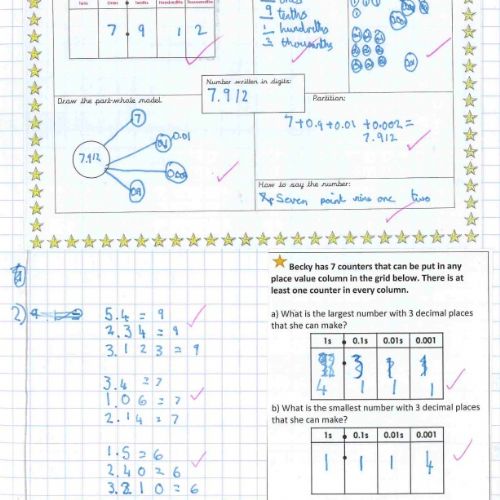 Tens Ones Tenths Hundredths Thousandths
7 . 9 1 2
ones
9 tenths
1 hundredths
3 thousandths
Number written in digits:
7.912
Draw the part-whole model
7.912
7
0.01
Partition:
7+0.9+0.01 +0.002=
7.912
How to say the number:
Seven point nine one two
2)
5.4 = 9
2.34 = 9
3.123 = 9
3.4 = 7
1.06 = 7
2.14 = 7
1.5 = 6
2.40 = 6
3.210 = 6
Becky has 7 counters that can be put in any
place value column in the grid below. There is at
least one counter in every column.
a) What is the largest number with 3 decimal places
that she can make?
1s 0.1s 0.01s 0.001
4 1 1 1
b) What is the smallest number with 3 decimal places
that she can make?
1s 0.1s 0.01s 0.001
1 1 1 4